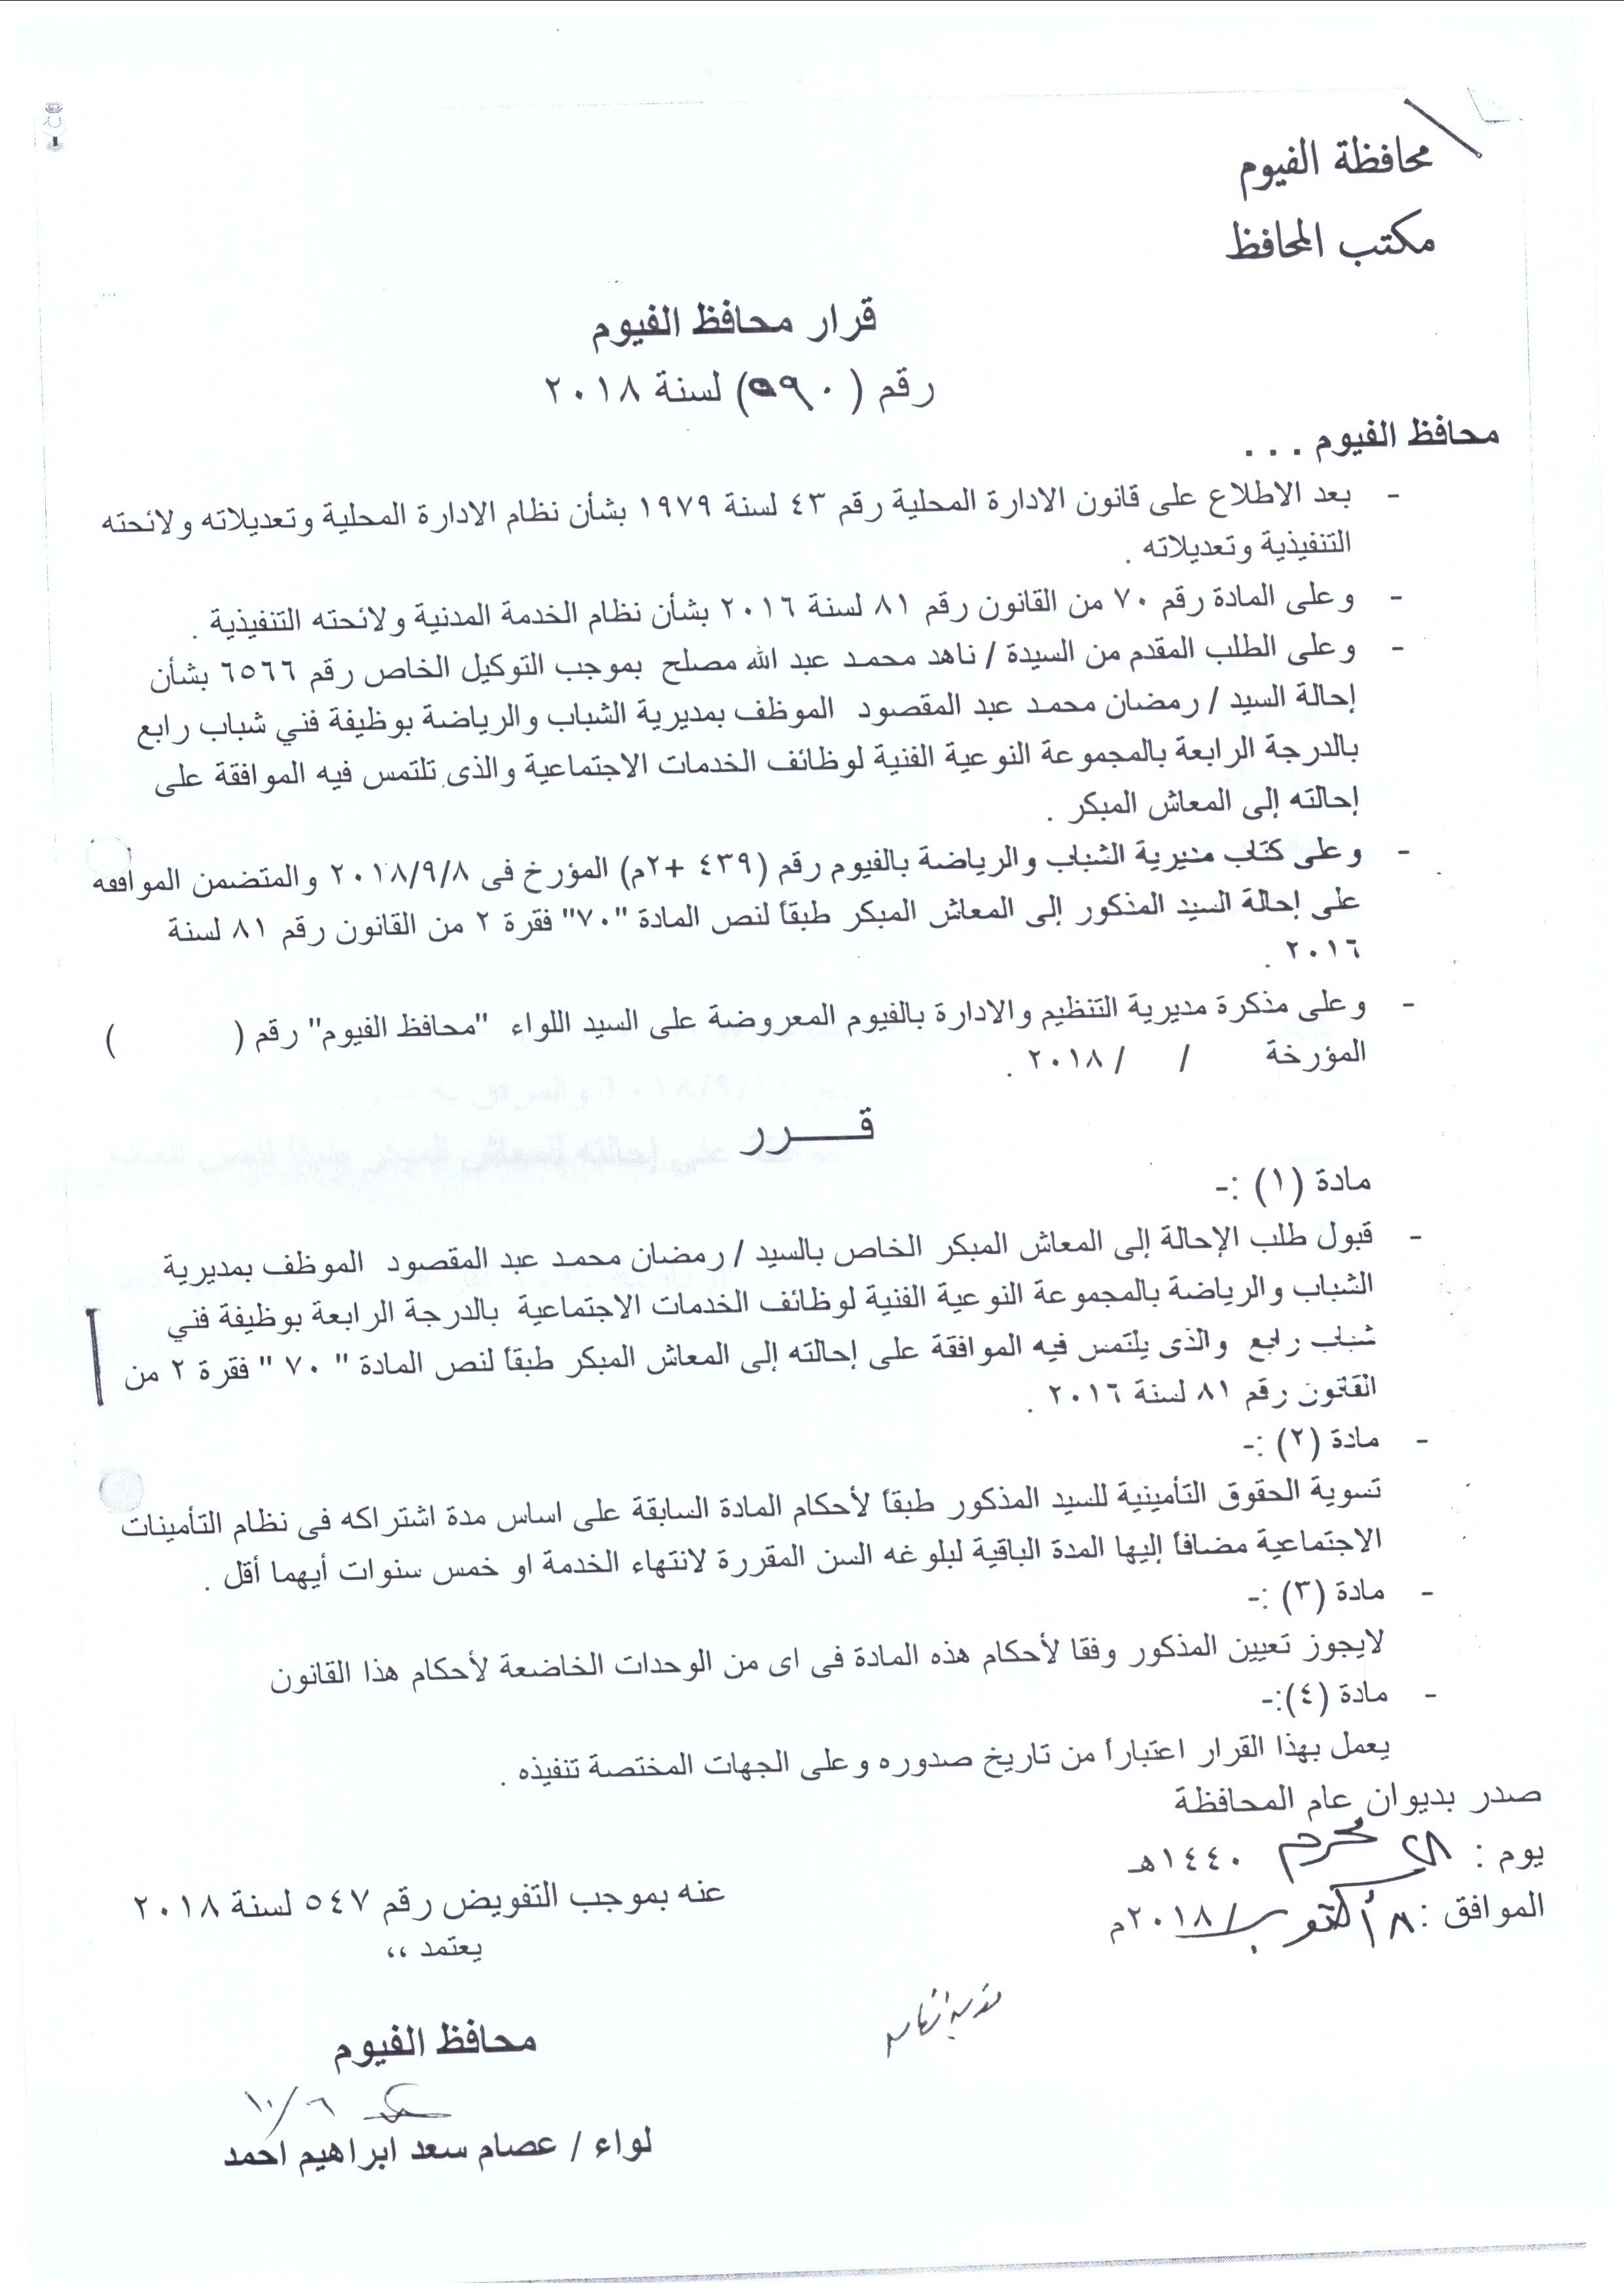 محافظة الفيوم
مكتب المحافظ
قرار محافظ الفيوم
رقم ( ٥٩٠) لسنة ٢٠١٨
محافظ الفيوم . . .
- بعد الاطلاع على قانون الادارة المحلية رقم ٤٣ لسنة ١٩٧٩ بشأن نظام الادارة المحلية وتعديلاته ولائحته
التنفيذية وتعديلاته .
- وعلى المادة رقم ٧٠ من القانون رقم ٨١ لسنة ٢٠١٦ بشأن نظام الخدمة المدنية ولائحته التنفيذية .
- وعلى الطلب المقدم من السيدة / ناهد محمد عبد الله مصلح بموجب التوكيل الخاص رقم ٦٥٦٦ بشأن
إحالة السيد / رمضان محمد عبد المقصود الموظف بمديرية الشباب والرياضة بوظيفة فني شباب رابع
بالدرجة الرابعة بالمجموعة النوعية الفنية لوظائف الخدمات الاجتماعية والذى تلتمس فيه الموافقة على
إحالته إلى المعاش المبكر .
- وعلى كتاب مديرية الشباب والرياضة بالفيوم رقم (٤٣٩ +٢م) المؤرخ فى ٢٠١٨/٩/٨ والمتضمن الموافقه
على إحالة السيد المذكور إلى المعاش المبكر طبقاً لنص المادة "٧٠" فقرة ٢ من القانون رقم ٨١ لسنة
٢٠١٦ .
- وعلى مذكرة مديرية التنظيم والادارة بالفيوم المعروضة على السيد اللواء "محافظ الفيوم" رقم ( )
المؤرخة / / ٢٠١٨ .
قـــــرر
مادة (١) :-
- قبول طلب الإحالة إلى المعاش المبكر الخاص بالسيد / رمضان محمد عبد المقصود الموظف بمديرية
الشباب والرياضة بالمجموعة النوعية الفنية لوظائف الخدمات الاجتماعية بالدرجة الرابعة بوظيفة فني
شباب رابع والذى يلتمس فيه الموافقة على إحالته إلى المعاش المبكر طبقاً لنص المادة " ٧٠ " فقرة ٢ من
القانون رقم ٨١ لسنة ٢٠١٦ .
- مادة (٢) :-
تسوية الحقوق التأمينية للسيد المذكور طبقاً لأحكام المادة السابقة على اساس مدة اشتراكه فى نظام التأمينات
الاجتماعية مضافاً إليها المدة الباقية لبلوغه السن المقررة لانتهاء الخدمة او خمس سنوات أيهما أقل .
- مادة (٣) :-
لايجوز تعيين المذكور وفقا لأحكام هذه المادة فى اى من الوحدات الخاضعة لأحكام هذا القانون
- مادة (٤):-
يعمل بهذا القرار اعتباراً من تاريخ صدوره وعلى الجهات المختصة تنفيذه .
صدر بديوان عام المحافظة
يوم : ٢٨ محرم ١٤٤٠هـ
الموافق : ٨ أكتوبر / ٢٠١٨م
عنه بموجب التفويض رقم ٥٤٧ لسنة ٢٠١٨
يعتمد ،،
محافظ الفيوم
١٠/٦
لواء / عصام سعد ابراهيم احمد